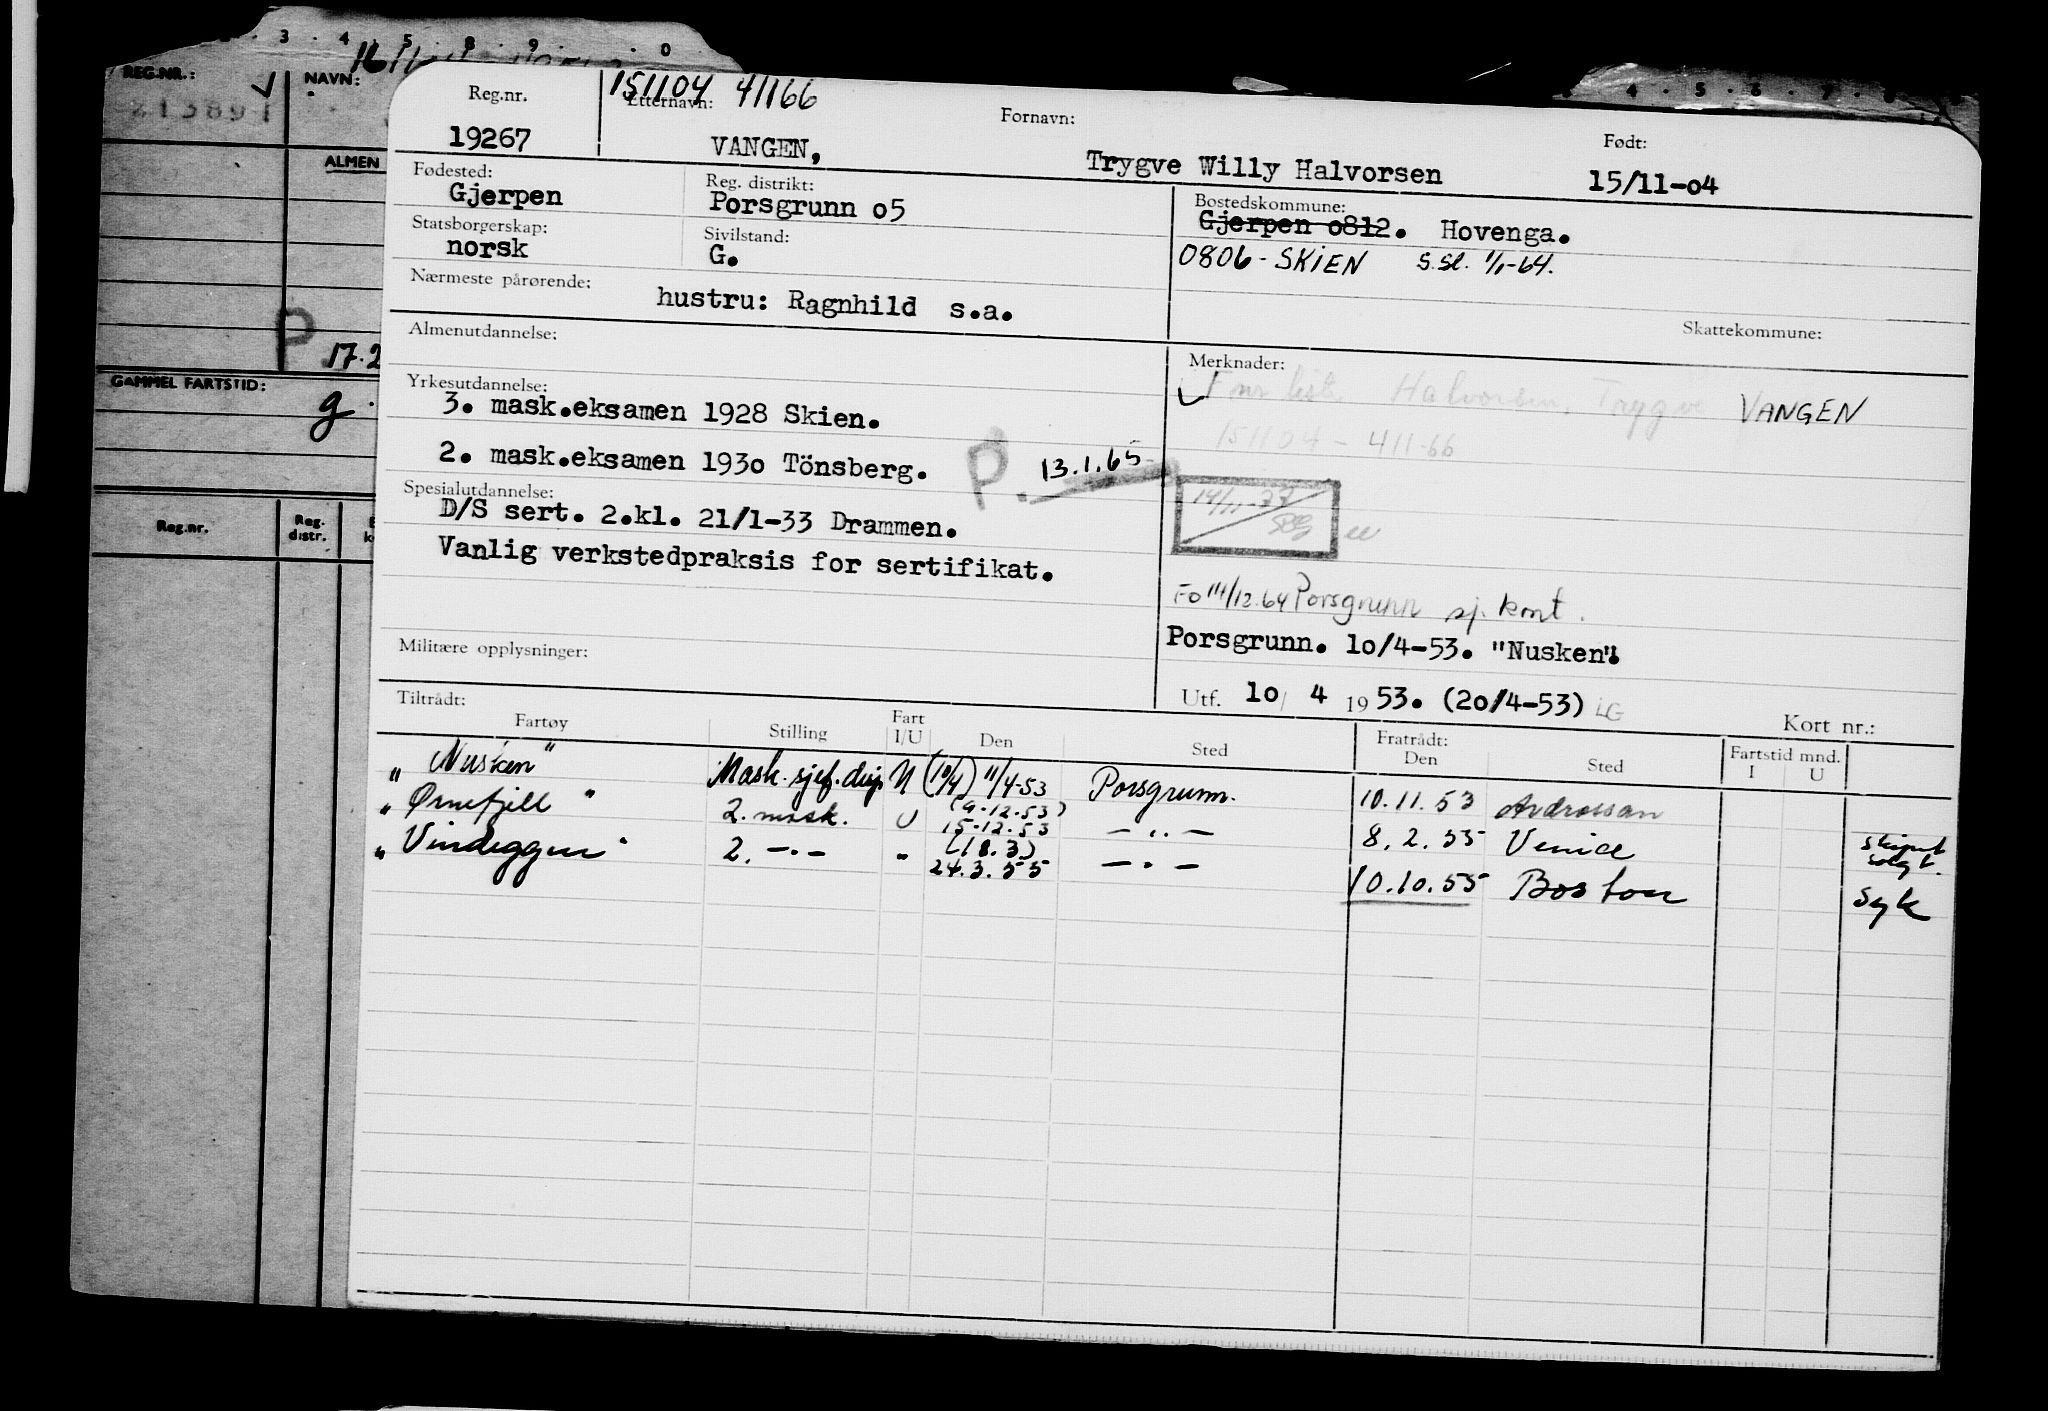 3 . 4 . 5 . 8 . 9 . . 0
4 . 5 . 6 . 7 . 8
REG.NR.:
NAVN:
213891
ALMEN
P 17.2
GAMMEL FARTSTID:
g.
Reg.nr.
Reg. distr.
151104 41166
Reg.nr.
Etternavn:
Fornavn:
Født:
19267
VANGEN,
Trygve Willy Halvorsen
15/11-04
Fødested:
Gjerpen
Reg. distrikt:
Porsgrunn 05
Bostedskommune:
Gjerpen 0812. Hovenga.
Statsborgerskap:
norsk
Sivilstand:
G.
0806 - SKIEN S.Sl. 1/1-64.
Nærmeste pårørende:
hustru: Ragnhild s.a.
Skattekommune:
Almenutdannelse:
Merknader:
Halvorsen, Trygve VANGEN
151104 - 411-66
Yrkesutdannelse:
3. mask.eksamen 1928 Skien.
2. mask.eksamen 1930 Tönsberg.
P. 13.1.65
Spesialutdannelse:
D/S sert. 2.kl. 21/1-33 Drammen.
Vanlig verkstedpraksis for sertifikat.
Fo 14/12.64 Porsgrunn sj. kont.
Porsgrunn. 10/4-53. "Nusken".
Militære opplysninger:
Utf. 10/ 4 1953. (20/4-53) LG
Kort nr.:
Tiltrådt:
Fartøy
Stilling
Fart I/U
Den
Sted
Fratrådt: Den
Sted
Fartstid mnd.
I U
"Nusken" Mask.sjef.disp U (10/4) 11/4-53 Porsgrunn. 10.11.53 Ardrossan
"Ørnefjell" 2. mask. U (9.12.53) 15.12.53 — " — 8.2.55 Venice skipet solgt.
"Vindeggen" 2. — " — " (18.3) 24.3.55 — " — 10.10.55 Boston syk